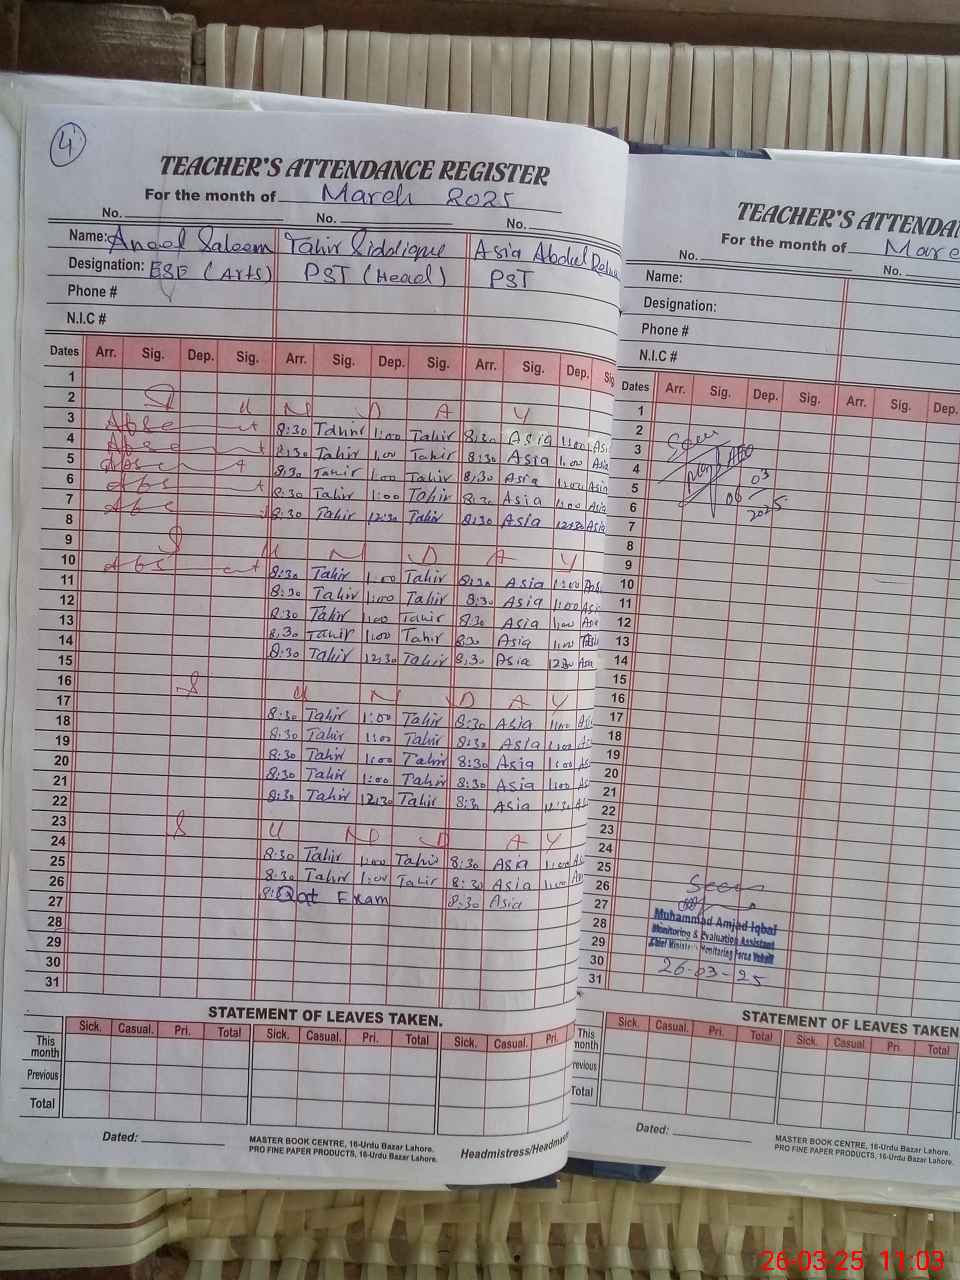 4
TEACHER'S ATTENDANCE REGISTER
For the month of March 2025
No. No. No.
Name: Anael Saleem Tahir Siddique Asia Abdul
Designation: ESE (Arts) PST (Head) PST
Phone #
N.I.C #
Dates Arr. Sig. Dep. Sig. Arr. Sig. Dep. Sig. Arr. Sig. Dep. Sig
1
2 S U N D A Y
3 Absent 8:30 Tahir 1:00 Tahir 8:30 Asia 1:00 Asi
4 Absent 8:30 Tahir 1:00 Tahir 8:30 Asia 1:00 Asia
5 Absent 8:30 Tahir 1:00 Tahir 8:30 Asia 1:00 Asia
6 Abs t 8:30 Tahir 1:00 Tahir 8:30 Asia 1:00 Asia
7 Abse 8:30 Tahir 12:30 Tahir 8:30 Asia 12:30 Asia
8
9 S U N D A Y
10 Absent 8:30 Tahir 1:00 Tahir 8:30 Asia 1:00 Asi
11 8:30 Tahir 1:00 Tahir 8:30 Asia 1:00 Asi
12 8:30 Tahir 1:00 Tahir 8:30 Asia 1:00 Asi
13 8:30 Tahir 1:00 Tahir 8:30 Asia 1:00 Asi
14 8:30 Tahir 12:30 Tahir 8:30 Asia 12:30 Asia
15
16 S U N D A Y
17 8:30 Tahir 1:00 Tahir 8:30 Asia 1:00 Asi
18 8:30 Tahir 1:00 Tahir 8:30 Asia 1:00 Asi
19 8:30 Tahir 1:00 Tahir 8:30 Asia 1:00 As
20 8:30 Tahir 1:00 Tahir 8:30 Asia 1:00 As
21 8:30 Tahir 12:30 Tahir 8:30 Asia 12:30 As
22
23 S U N D A Y
24 8:30 Tahir 1:00 Tahir 8:30 Asia 1:00 As
25 8:30 Tahir 1:00 Tahir 8:30 Asia 1:00 As
26 Qat Exam 8:30 Asia
27
28
29
30
31
STATEMENT OF LEAVES TAKEN.
Sick. Casual. Pri. Total Sick. Casual. Pri. Total Sick. Casual. Pri.
This month
Previous
Total
Dated:
MASTER BOOK CENTRE, 16-Urdu Bazar Lahore.
PRO FINE PAPER PRODUCTS, 16-Urdu Bazar Lahore.
Headmistress/Headmast
TEACHER'S ATTENDA
For the month of Marc
No. No.
Name:
Designation:
Phone #
N.I.C #
Dates Arr. Sig. Dep. Sig. Arr. Sig. Dep.
1
2
3 Seen
4
5 03
6 06
7 2025
8
9
10
11
12
13
14
15
16
17
18
19
20
21
22
23
24
25
26 Seen
27
28 Muhammad Amjad Iqbal
29 Monitoring & Evaluation Assistant
30 Chief Minister's Monitoring Force Vehari
31 26-03-25
STATEMENT OF LEAVES TAKEN
Sick. Casual. Pri. Total Sick. Casual. Pri. Total
This month
Previous
Total
Dated:
MASTER BOOK CENTRE, 16-Urdu Bazar Lahore.
PRO FINE PAPER PRODUCTS, 16-Urdu Bazar Lahore.
26-03-25 11:03